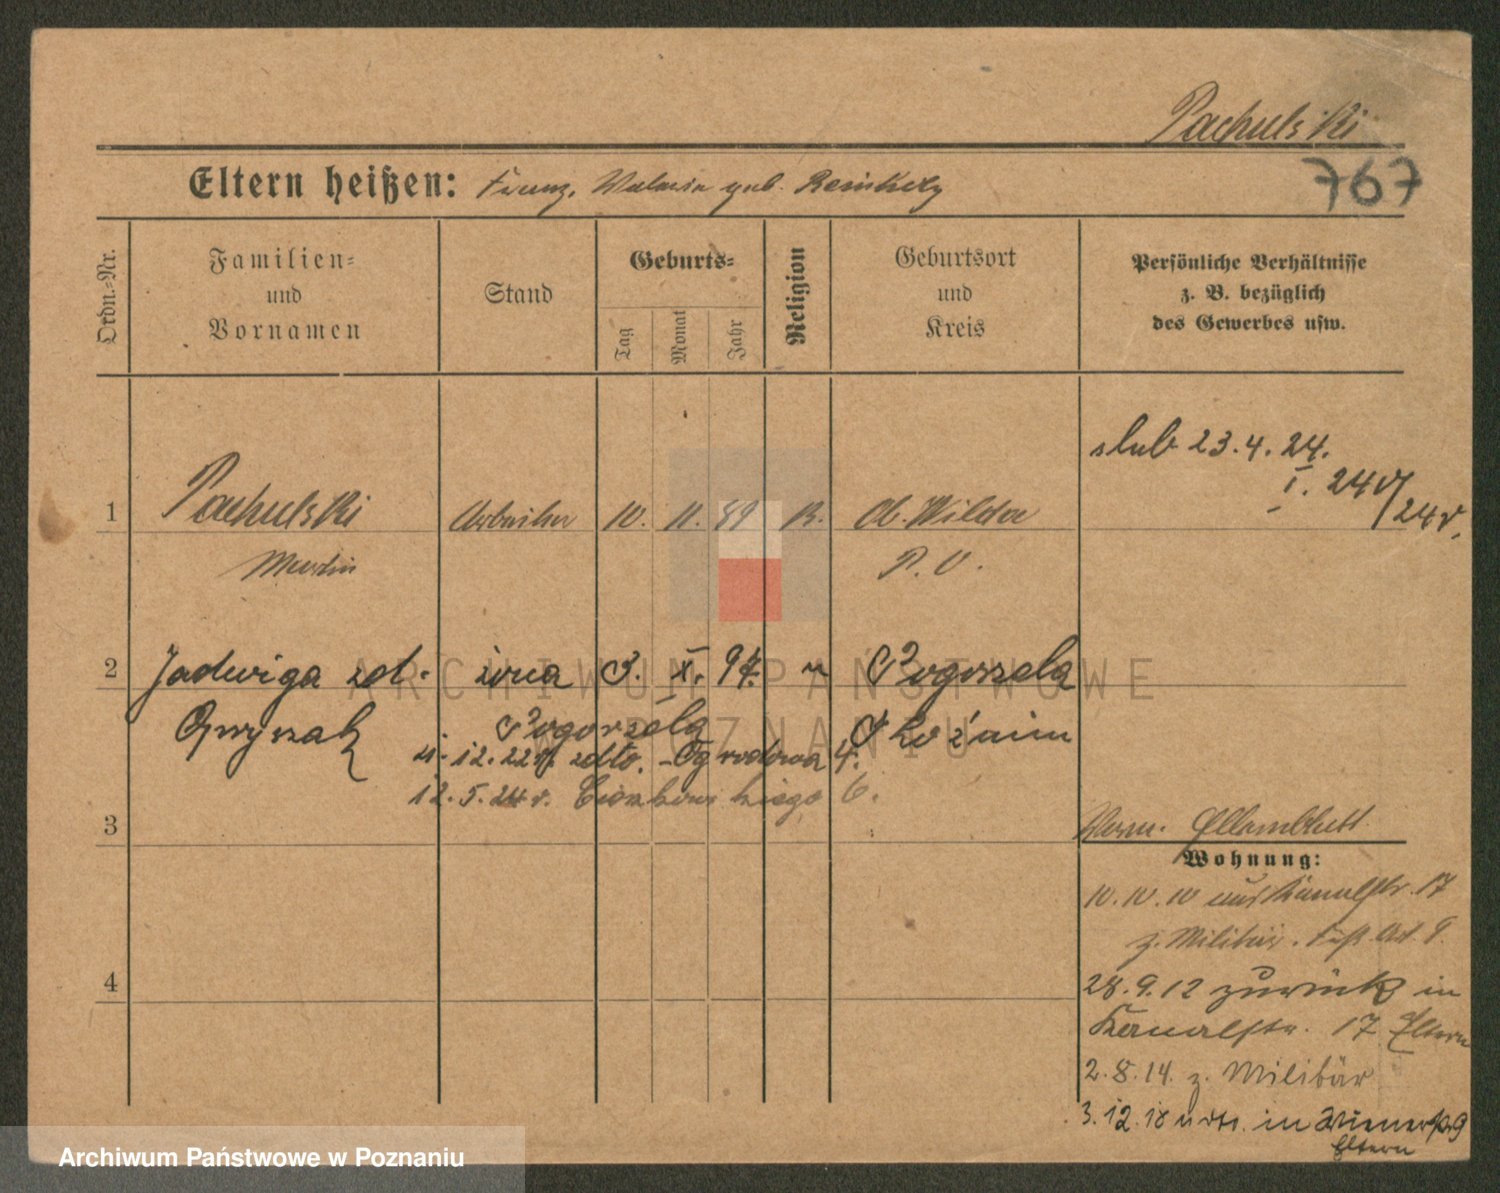 Pachulski
767
Eltern heißen: Franz, Valeria geb.
Ordn.-Nr.
Familien-
und
Vornamen
Stand
Geburts-
Tag
Monat
Jahr
Religion
Geburtsort
und
Kreis
Persönliche Verhältnisse
z. B. bezüglich
des Gewerbes usw.
ślub 23.4.24.
I. 24
24 r.
1 Pachulski Arbeiter 10. 11. 89 K. Ob. Wilda
Martin P. O.
2 Jadwiga zd. żona 3. X. 97. " Pogorzela
Pogorzela Koźmin
4.12.22 r. zdto. Ogrodowa 4.
12.5.24 r. 6.
3
Wohnung:
10.10.10 aus Kanalstr. 17
z. Militär.
4
28.9.12 zurück in
Kanalstr. 17 Eltern
2.8.14. z. Militär
3.12.18 in
Eltern
ARCHIWUM PAŃSTWOWE
W POZNANIU
Archiwum Państwowe w Poznaniu